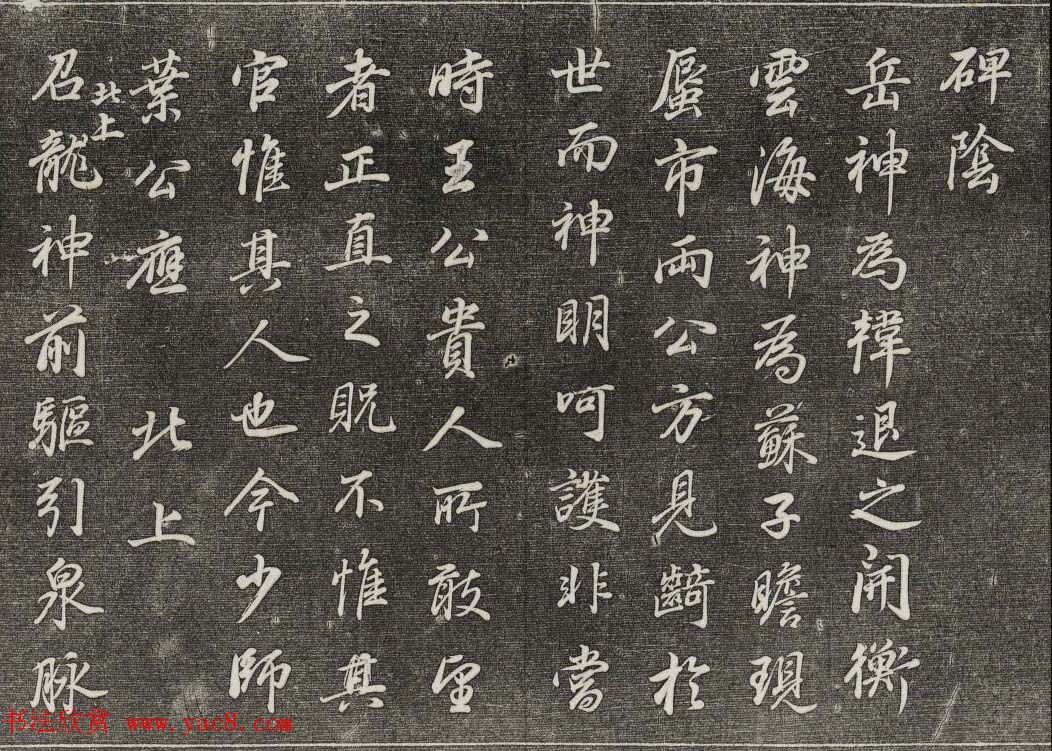 碑陰
岳神為韓退之開衡
雲海神為蘇子瞻現
蜃市兩公方見齮於
世而神明呵護非當
時王公貴人所敢望
者正直之貺不惟其
官惟其人也今少師
葉公應 北上
北上
召龍神前驅引泉脉
书法欣赏 www.yac8.com